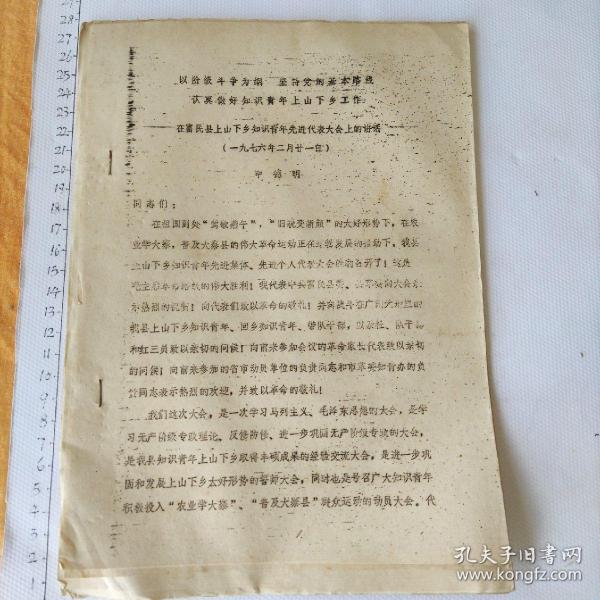 以阶级斗争为纲 坚持党的基本路线
认真做好知识青年上山下乡工作
在富民县上山下乡知识青年先进代表大会上的讲话
(一九七六年二月廿一日)
明
同志们:
在祖国到处“莺歌燕午”,“旧貌变新颜”的大好形势下,在农
业学大寨,普及大寨县的伟大革命运动正在 发展的推动下,我县
上山下乡知识青年先进集体、先进个人代表大会胜利召开了!这是
毛主席革命路线的伟大胜利!我代表中共富民县委、 向大会表
示热烈的祝贺!向代表们致以革命的敬礼!并向战斗在广阔天地里的
我县上山下乡知识青年、回乡知识青年、带队干部,以及社、队干部
和 致以亲切的问候!向前来参加会议的革命家长代表致以亲切
的问候!向前来参加的省市动员单位的负责同志和市革委知青办的负
责同志表示热烈的欢迎,并致以革命的敬礼!
我们这次大会,是一次学习马列主义、毛泽东思想的大会,是学
习无产阶级专政理论、反修防修、进一步巩固无产阶级专政的大会,
是我县知识青年上山下乡取得丰硕成果的经验交流大会,是进一步巩
固和发展上山下乡大好形势的誓师大会,同时也是号召广大知识青年
积极投入“农业学大寨”、“普及大寨县”群众运动的动员大会。代
孔夫子旧书网
www.kongfz.com
29
27
26
25
24
23
22
21
20
19
18
17
16
15
14
13
12
11
10
9
8
7
6
5
4
3
2
1